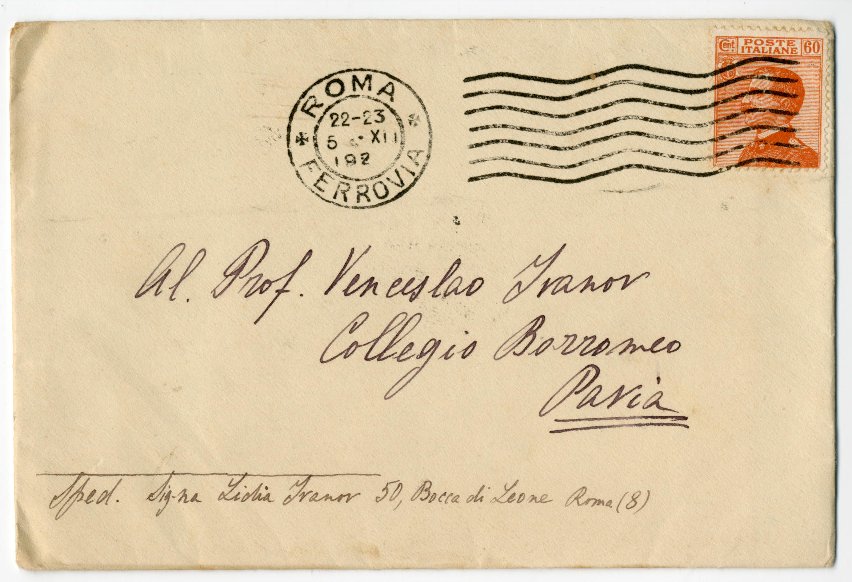 Cent. POSTE ITALIANE 60
ROMA
22-23
5 XII
192
FERROVIA
Al. Prof. Venceslao Ivanov
Collegio Borromeo
Pavia
Sped. Sig-na Lidia Ivanov 50, Bocca di Leone Roma (8)